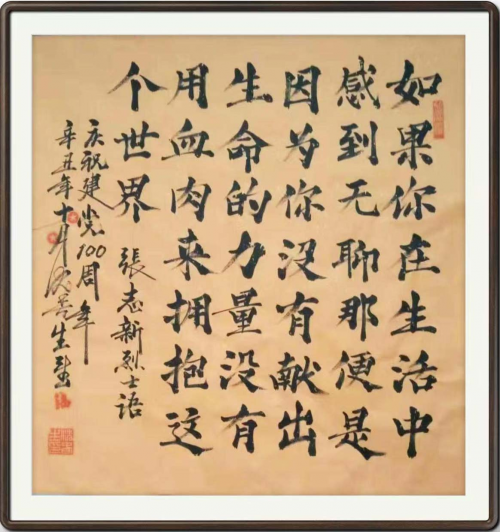 如果你在生活中
感到无聊那便是
因为你没有献出
生命的力量没有
用血肉来拥抱这
个世界
張志新烈士语
庆祝建党100周年
辛丑年十月生